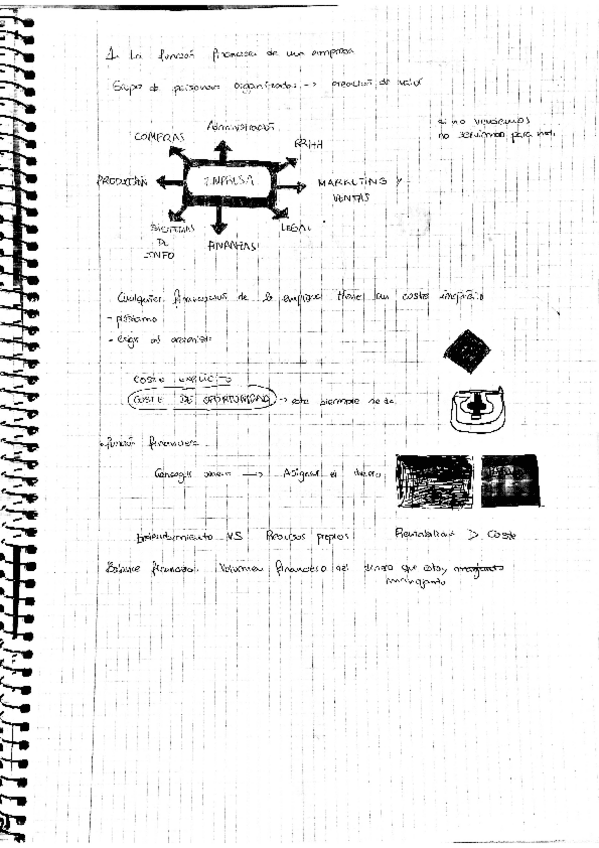 1. La función financiera de una empresa
Grupo de personas organizadas -> creación de valor
si no vendemos
no servimos para nada
Administración
COMPRAS
RRHH
PRODUCCIÓN
EMPRESA
MARKETING Y
VENTAS
SISTEMAS
DE
INFO
FINANZAS
LEGAL
Cualquier financiación de la empresa tiene un coste implícito
- préstamo
- exigir al accionista
COSTE
COSTE DE OPORTUNIDAD -> este siempre se da
función financiera
Conseguir -> Asignar el dinero
Endeudamiento VS Recursos propios Rentabilidad > Coste
Balance financiero. Volumen financiero del dinero que estoy
manejando